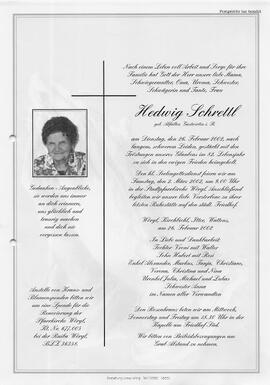 Nach einem Leben voll Arbeit und Sorge für ihre
Familie hat Gott der Herr unsere liebe Mama,
Schwiegermutter, Oma, Uroma, Schwester,
Schwägerin und Tante, Frau
Hedwig Schrettl
geb.
am Dienstag, den 26. Februar 2002, nach
langem, schweren Leiden, gestärkt mit den
Tröstungen unseres Glaubens im 82. Lebensjahr
zu sich in den ewigen Frieden heimgeholt.
Den hl. Seelengottesdienst feiern wir am
Samstag, den 2. März 2002, um 9.00 Uhr
in der Stadtpfarrkirche Wörgl. Anschließend
begleiten wir unsere liebe Verstorbene zu ihrer
letzten Ruhestätte auf dem städt. Friedhof.
Wörgl, Kirchbichl, Itter, Wattens,
am 26. Februar 2002
In Liebe und Dankbarkeit:
Tochter Vroni mit Walter
Sohn Hubert mit Rosi
Enkel Alexandra, Markus, Tanja, Christiane,
Verena, Christina und Nina
Urenkel Julia, Michael und Lukas
Schwester Anna
im Namen aller Verwandten
Den Rosenkranz beten wir am Mittwoch,
Donnerstag und Freitag um 18.30 Uhr in der
Kapelle am Friedhof Süd.
Wir bitten von Beileidsbezeigungen am
Grab Abstand zu nehmen.
Gedanken - Augenblicke,
sie werden uns immer
an dich erinnern,
uns glücklich und
traurig machen
und dich nie
vergessen lassen.
Anstelle von Kranz- und
Blumenspenden bitten wir
um eine Spende für die
Renovierung der
Pfarrkirche Wörgl,
Kt. Nr. 677.005
bei der Raiba Wörgl,
BLZ 36358.